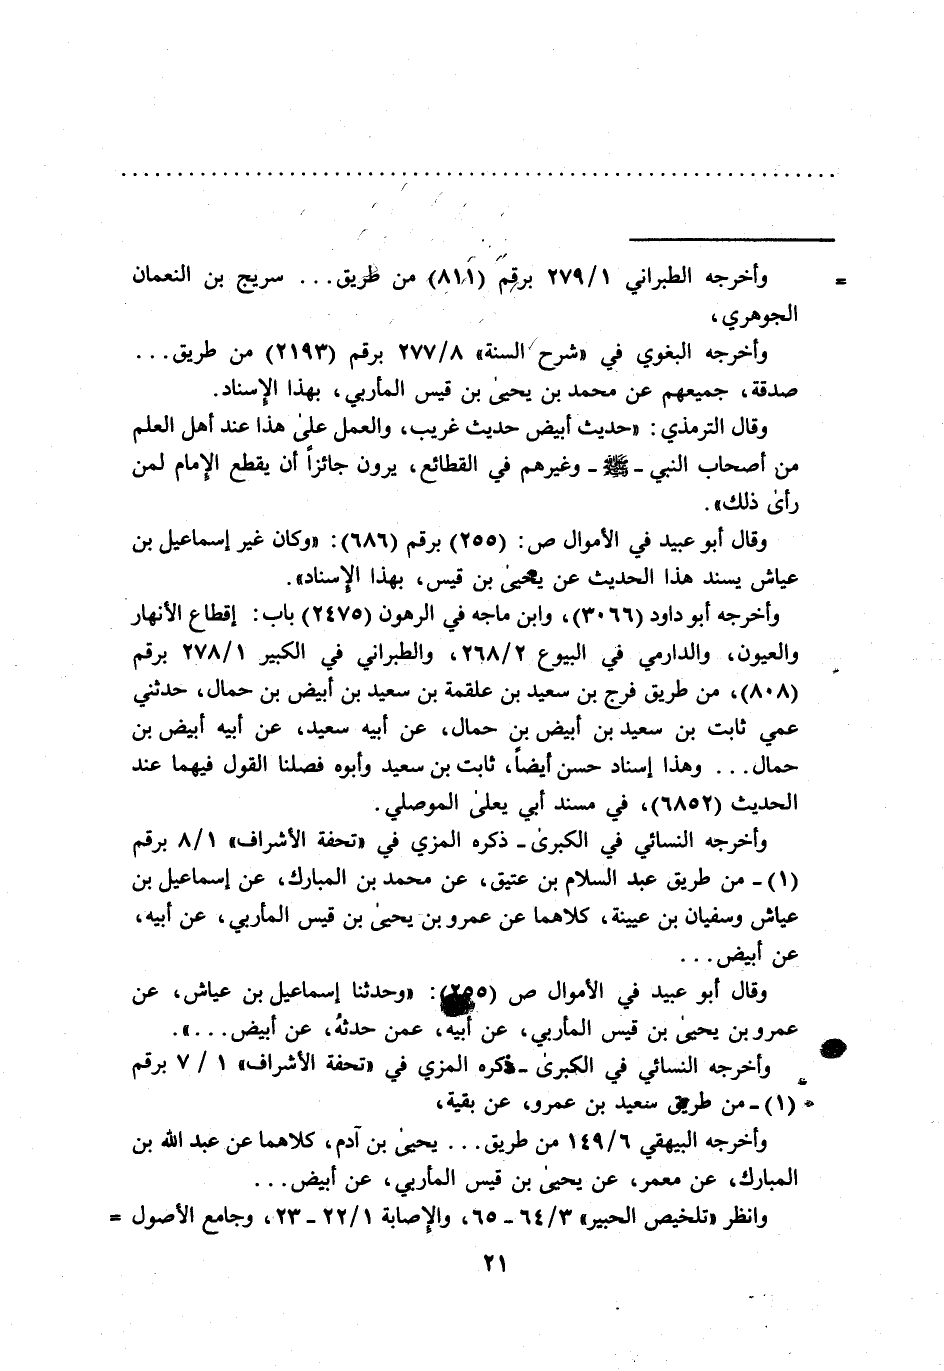 = وأخرجه الطبراني ٢٧٩/١ برقم (٨١١) من طريق... سريج بن النعمان
الجوهري،
وأخرجه البغوي في «شرح السنة» ٢٧٧/٨ برقم (٢١٩٣) من طريق...
صدقة، جميعهم عن محمد بن يحيىٰ بن قيس المأربي، بهذا الإسناد.
وقال الترمذي: «حديث أبيض حديث غريب، والعمل علىٰ هذا عند أهل العلم
من أصحاب النبي - ﷺ - وغيرهم في القطائع، يرون جائزاً أن يقطع الإمام لمن
رأىٰ ذلك».
وقال أبو عبيد في الأموال ص: (٢٥٥) برقم (٦٨٦): «وكان غير إسماعيل بن
عياش يسند هذا الحديث عن يحيىٰ بن قيس، بهذا الإسناد».
وأخرجه أبو داود (٣٠٦٦)، وابن ماجه في الرهون (٢٤٧٥) باب: إقطاع الأنهار
والعيون، والدارمي في البيوع ٢٦٨/٢، والطبراني في الكبير ٢٧٨/١ برقم
(٨٠٨)، من طريق فرج بن سعيد بن علقمة بن سعيد بن أبيض بن حمال، حدثني
عمي ثابت بن سعيد بن أبيض بن حمال، عن أبيه سعيد، عن أبيه أبيض بن
حمال... وهذا إسناد حسن أيضاً، ثابت بن سعيد وأبوه فصلنا القول فيهما عند
الحديث (٦٨٥٢)، في مسند أبي يعلىٰ الموصلي.
وأخرجه النسائي في الكبرىٰ - ذكره المزي في «تحفة الأشراف» ٨/١ برقم
(١) - من طريق عبد السلام بن عتيق، عن محمد بن المبارك، عن إسماعيل بن
عياش وسفيان بن عيينة، كلاهما عن عمرو بن يحيىٰ بن قيس المأربي، عن أبيه،
عن أبيض...
وقال أبو عبيد في الأموال ص (٢٥٥): «وحدثنا إسماعيل بن عياش، عن
عمرو بن يحيىٰ بن قيس المأربي، عن أبيه، عمن حدثهُ، عن أبيض...».
وأخرجه النسائي في الكبرىٰ - ذكره المزي في «تحفة الأشراف» ١ / ٧ برقم
(١) - من طريق سعيد بن عمرو، عن بقية،
وأخرجه البيهقي ١٤٩/٦ من طريق... يحيىٰ بن آدم، كلاهما عن عبد الله بن
المبارك، عن معمر، عن يحيىٰ بن قيس المأربي، عن أبيض...
وانظر «تلخيص الحبير» ٦٤/٣ - ٦٥، والإصابة ٢٢/١ - ٢٣، وجامع الأصول =
٢١